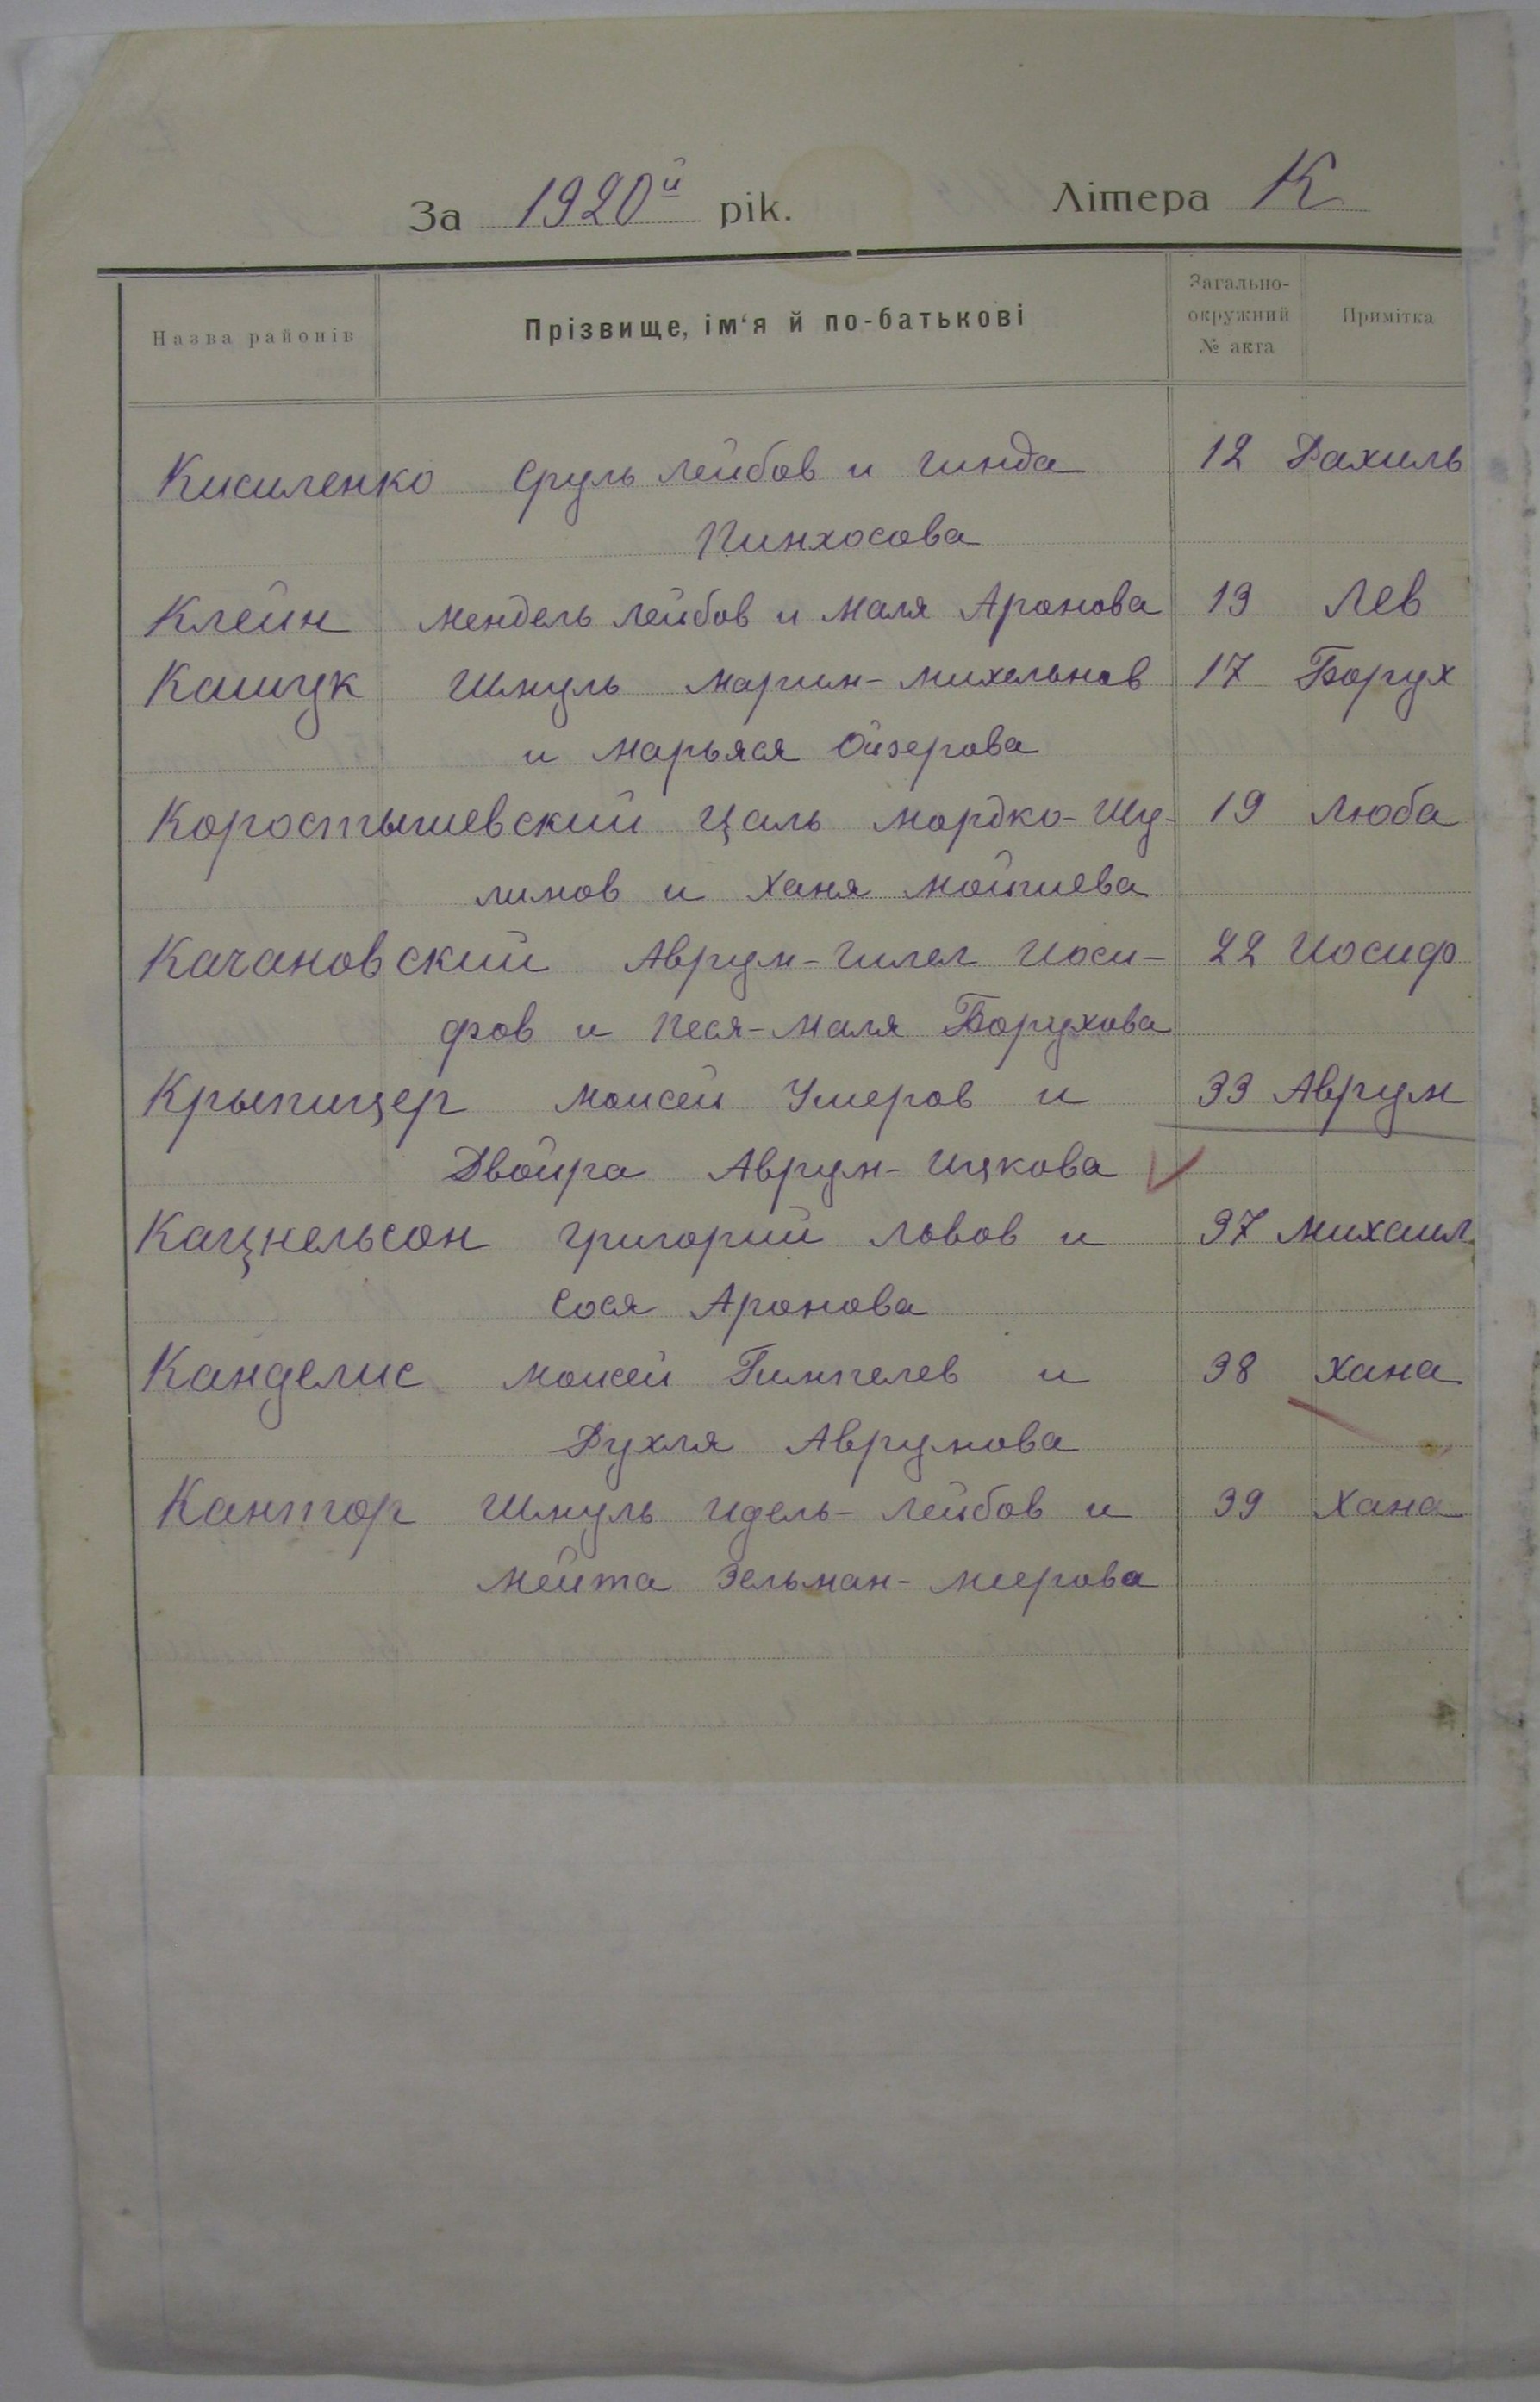 За 1920й рік. Літера К
Назва районів Прізвище, ім'я й по-батькові Загально-окружний № акта Примітка
Кисиленко Сруль Лейбов и Гинда 12 Рахиль
Пинхосова
Клейн Мендель Лейбов и Маля Аронова 13 Лев
Кашук Шмуль Марим-Михельнов 17 Борух
и Марьяся Ойзерова
Коростышевский Цаль Мордко-Шу- 19 Люба
лимов и Ханя Мойшева
Качановский Аврум-Гилел Иоси- 22 Иосиф
фов и Песя-Маля Борухова
Крыпицер Моисей Умеров и 33 Аврум
Двойра Аврум-Ицкова
Кацнельсон Григорий Львов и 37 Михаил
Сося Аронова
Канделис Моисей Гимпелев и 38 Хана
Рухля Аврумова
Кантор Шмуль Идель-Лейбов и 39 Хана
Мейта Зельман-Меерова